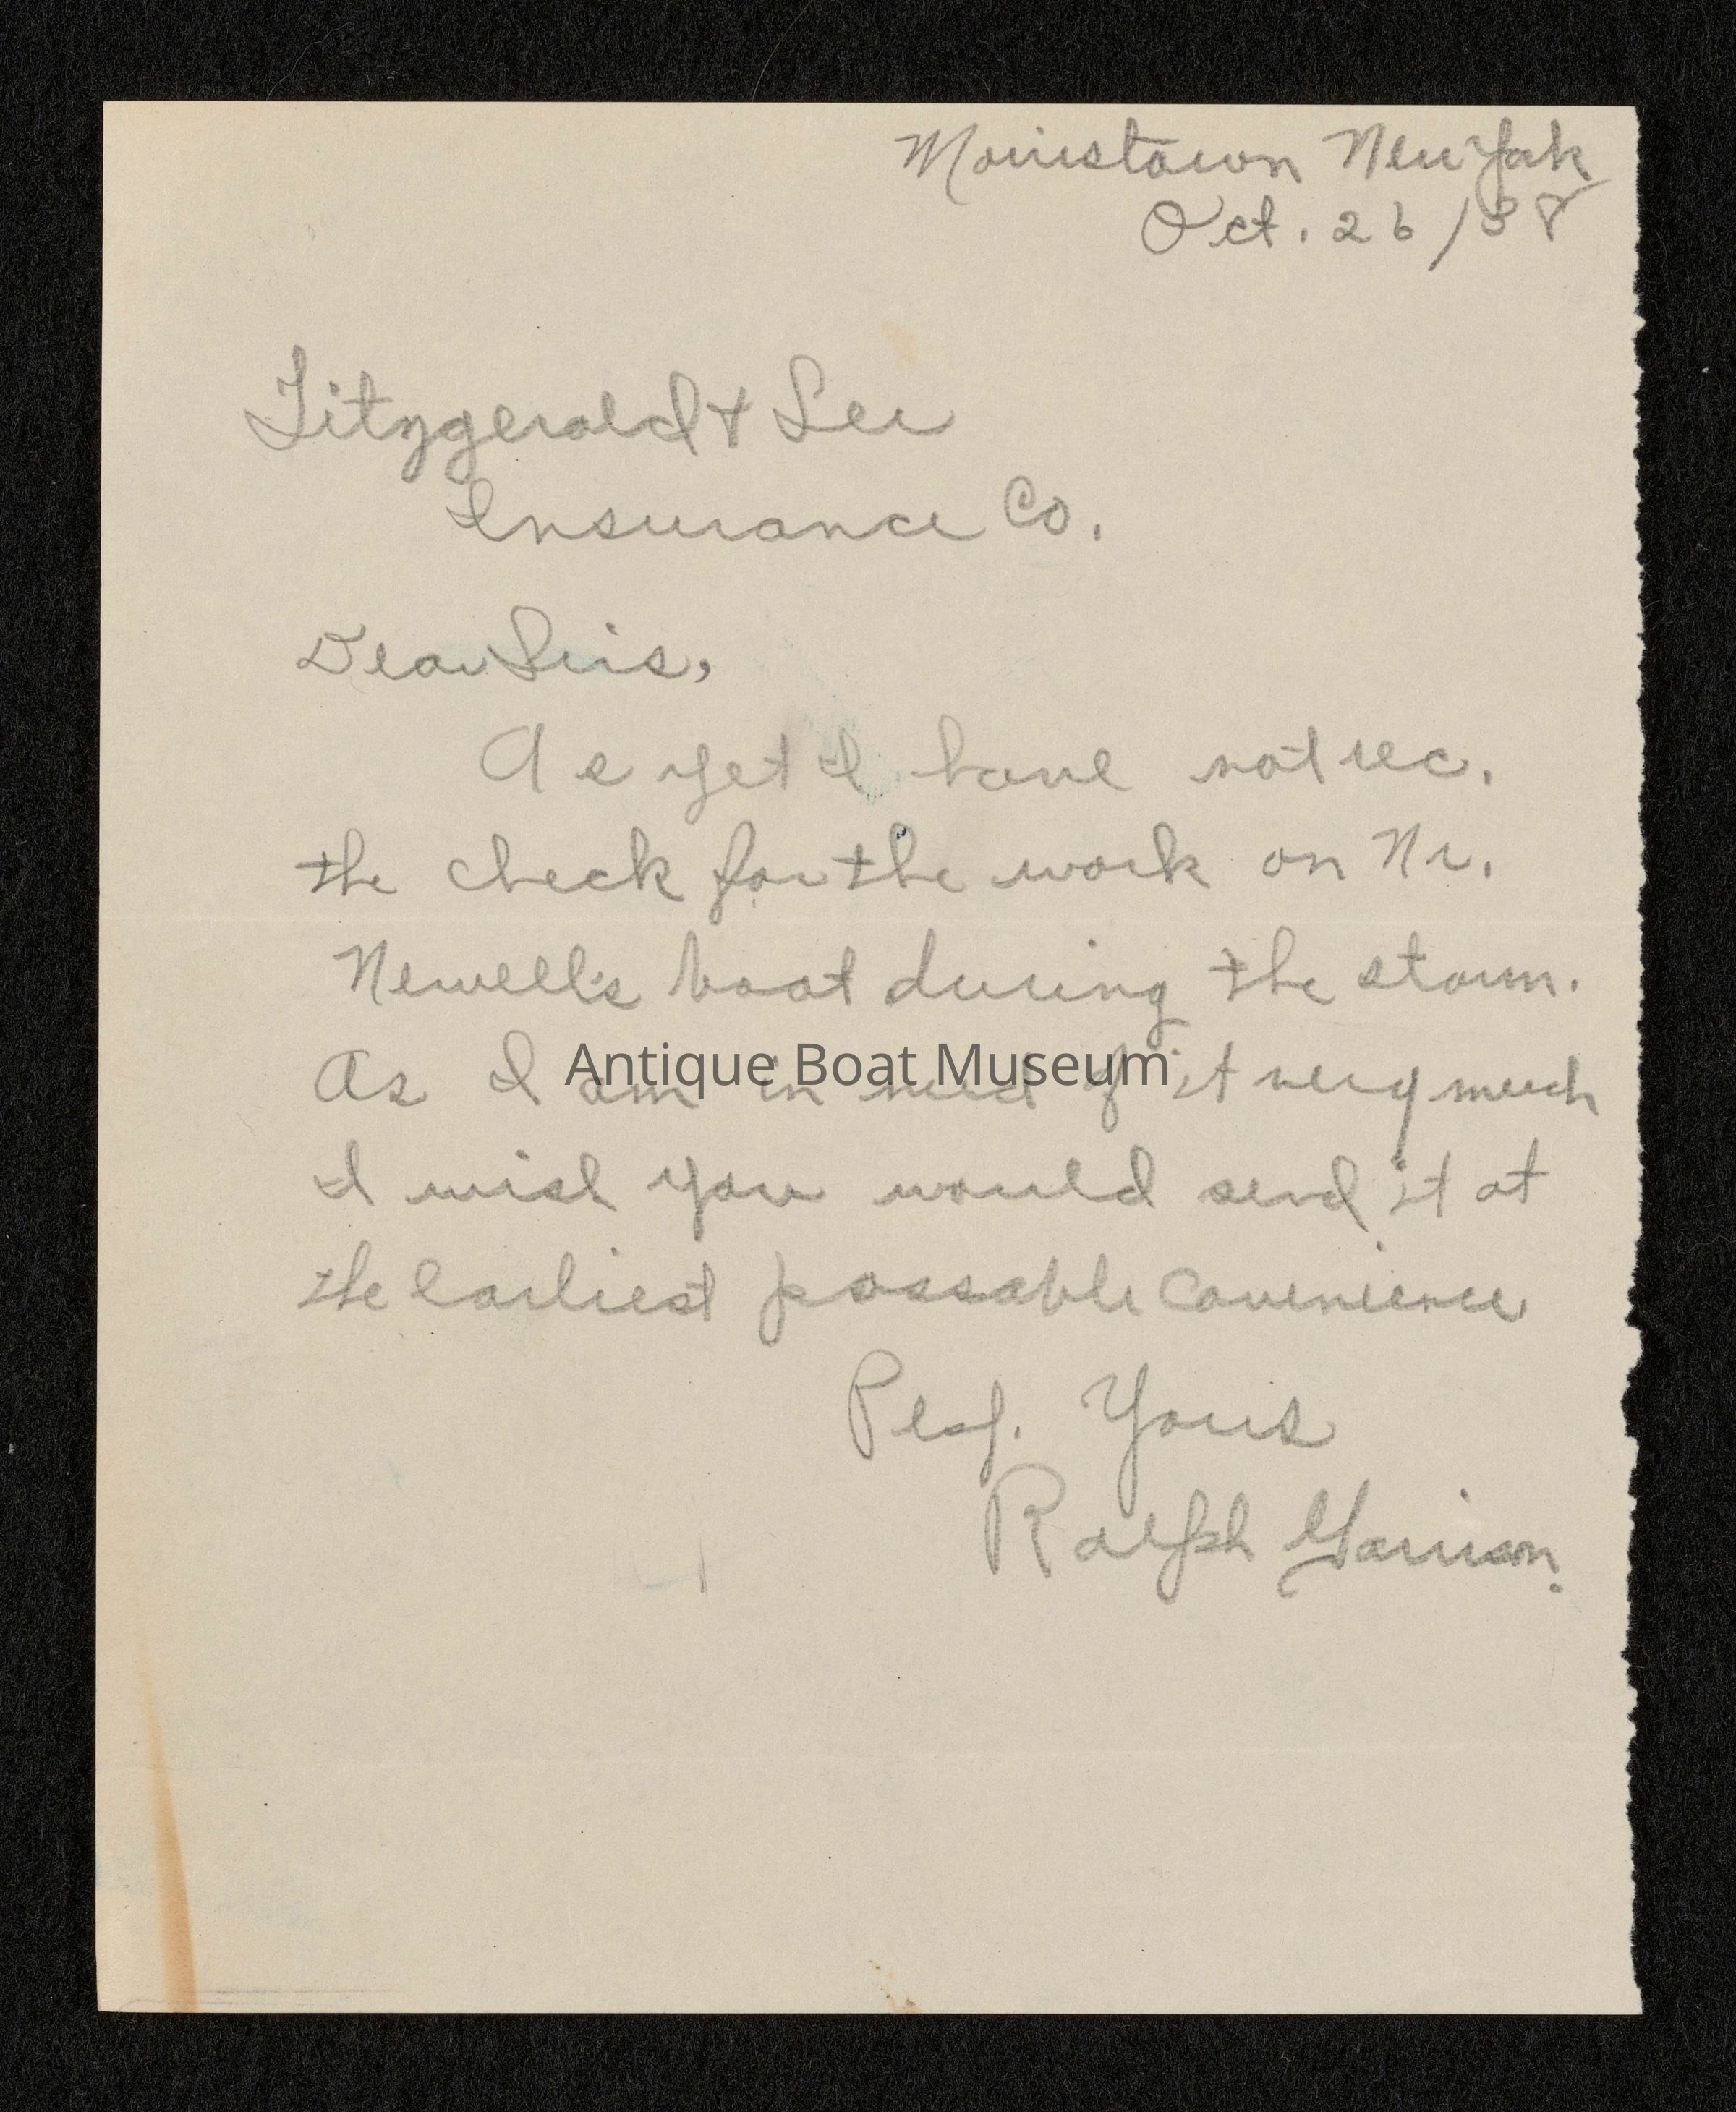 Morristown New York
Oct. 26/38
Fitzgerald & Lee
Insurance Co.
Dear Sirs,
As yet I have not rec.
the check for the work on Mr.
Newell's boat during the storm.
As I am in need of it very much
Antique Boat Museum
I wish you would send it at
the earliest possable convenience
Resp. Yours
Ralph Garrison.